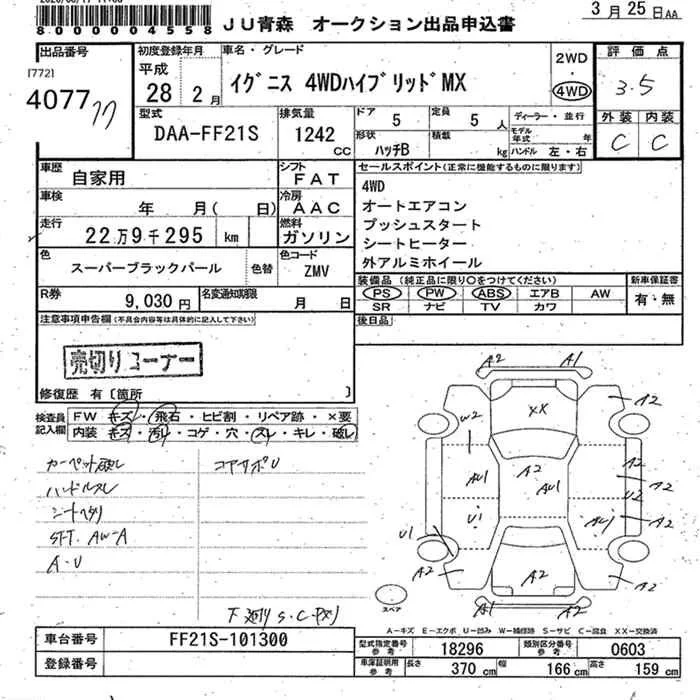 8000004558
JU青森 オークション出品申込書
3月25日AA
出品番号
[772]
4077
77
初度登録年月
平成
28 2月
車名・グレード
イグニス 4WDハイブリッドMX
2WD
・
4WD
評価点
3.5
外装 内装
C C
型式
DAA-FF21S
排気量
1242
CC
ドア
5
定員
5 人
形状
ハッチB
積載
kg
ディーラー・並行
モデル年式 年
ハンドル 左・右
車歴
自家用
シフト
FAT
車検
年 月( 日)
冷房
AAC
走行
22万9千295 km
燃料
ガソリン
色
スーパーブラックパール
色替
色コード
ZMV
R券
9,030円
名変通知期限
月 日
セールスポイント(正常に機能するものに限ります)
4WD
オートエアコン
プッシュスタート
シートヒーター
外アルミホイール
装備品(純正品に限り〇をつけてください)
PS PW ABS エアB AW
SR ナビ TV カワ
新車保証書
有・無
後日品
注意事項申告欄(不具合内容等は具体的に記入して下さい)
売切りコーナー
修復歴 有〔箇所 〕
検査員記入欄
FW キズ・飛石・ヒビ割・リペア跡・×要
内装 キズ・汚レ・コゲ・穴・スレ・キレ・破レ
カーペット破レ
ハンドルスレ
シートヘタリ
SFT. AW-A
A・U
コアサポU
A2 A1
A2
W2
XX
A2
AU1
AU1
A2
U2
A2
U1
AU1
A2
U1
A2
A2
A2
A1 A2
スペア
A-キズ E-エクボ U-凹み W-補修跡 S-サビ C-腐食 XX-交換済
車台番号
FF21S-101300
登録番号
型式指定番号
参考
18296
類別区分番号
参考
0603
車庫証明用
参考
長さ
370 cm
幅
166 cm
高さ
159 cm